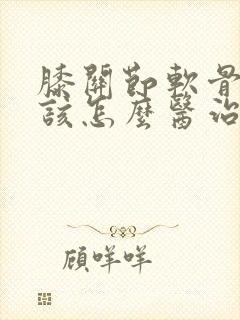 膝關節軟骨
該怎麼醫治
顧咩咩